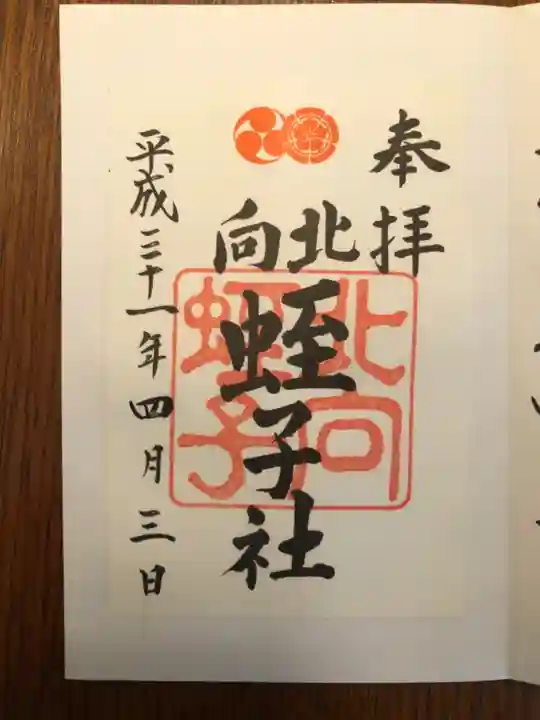 奉拝
北向
蛭子社
北向
蛭子
平成三十一年四月三日